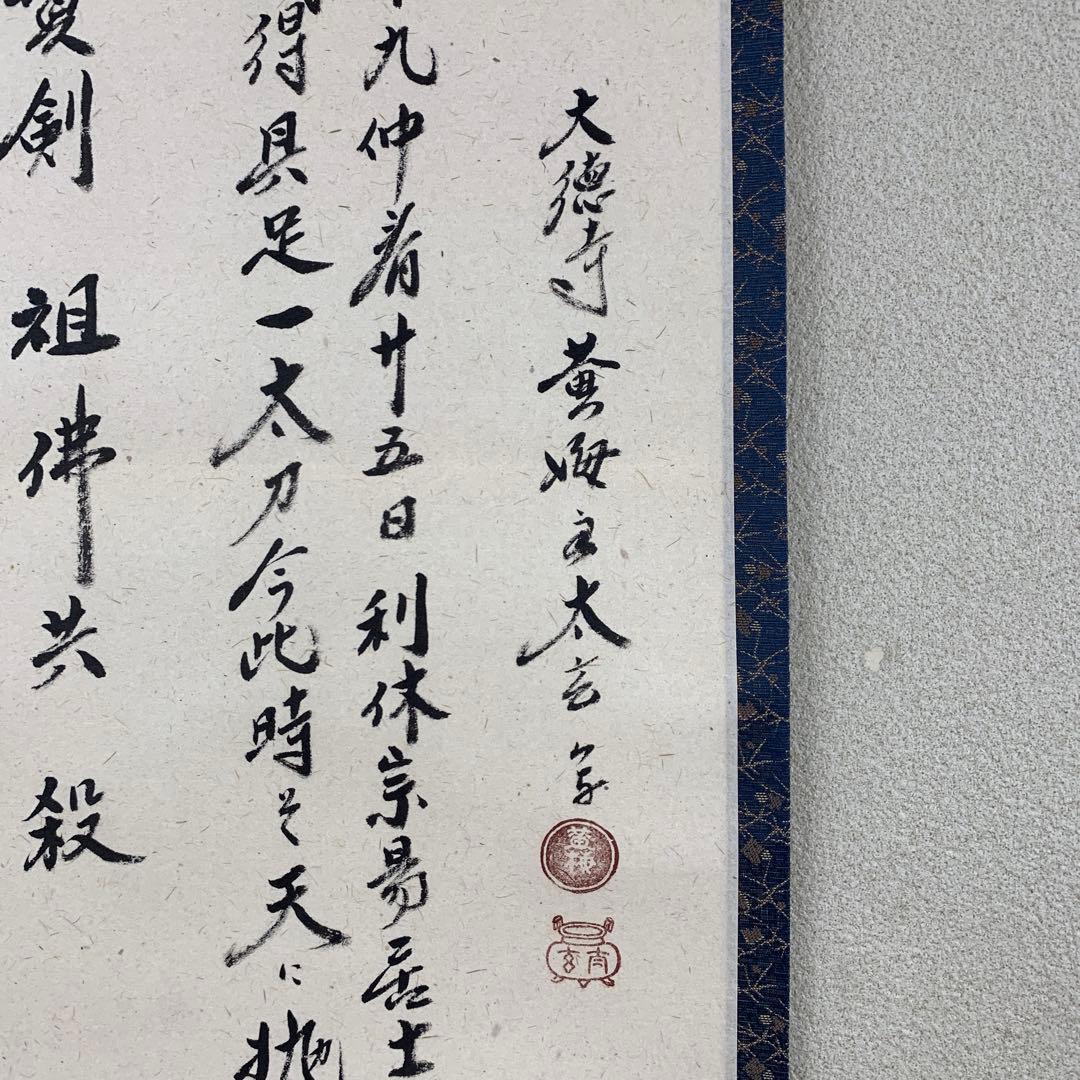 剣 祖佛共殺
得具足一太刀今此時そ天に抛
九仲春廿五日 利休宗易居士
大徳寺 黄梅主太玄
黄梅